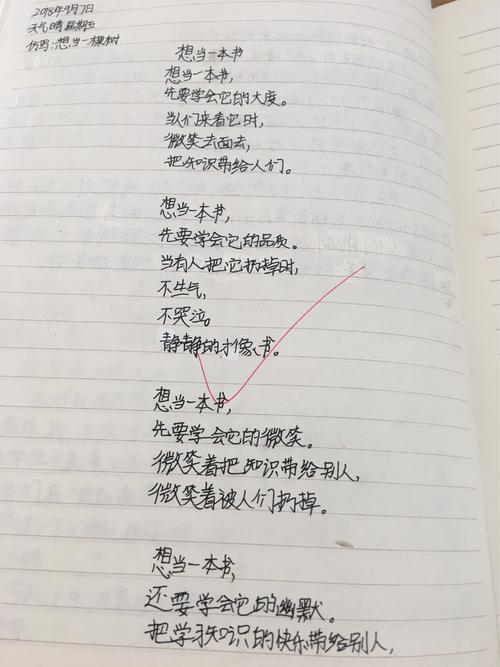 2018年9月7日
天气晴 星期五
仿写:想当一棵树
想当一本书
想当一本书,
先要学会它的大度。
当人们来看它时,
微笑去面去,
把知识带给人们。
想当一本书,
先要学会它的品质。
当有人把它扔掉时,
不生气,
不哭泣。
静静的才像书。
想当一本书,
先要学会它的微笑。
微笑着把知识带给别人,
微笑着被人们扔掉。
想当一本书,
还要学会它的幽默。
把学习知识的快乐带给别人,